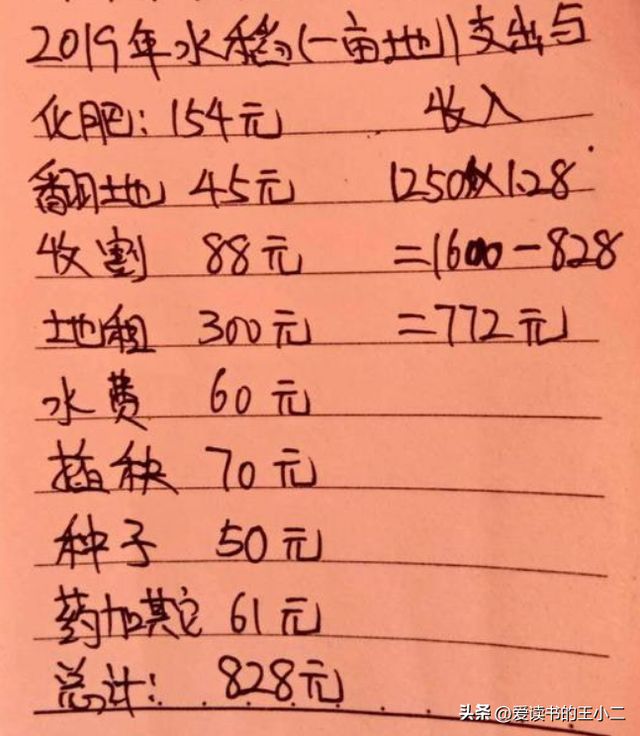 2019年水稻(一亩地)支出与
化肥:154元 收入
翻地 45元 1250X1.28
收割 88元 =1600-828
土地租 300元 =772元
水费 60元
插秧 70元
种子 50元
药加其它 61元
总计: 828元
头条 @爱读书的王小二